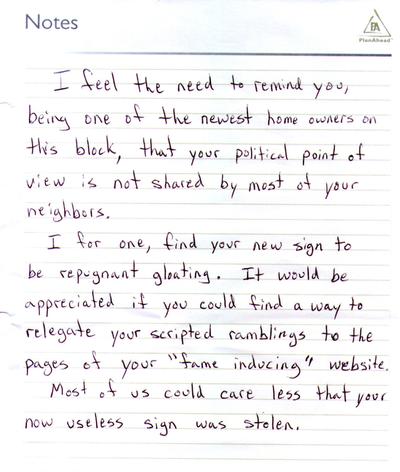 Notes
PA
PlanAhead
I feel the need to remind you,
being one of the newest home owners on
this block, that your political point of
view is not shared by most of your
neighbors.
I for one, find your new sign to
be repugnant gloating. It would be
appreciated if you could find a way to
relegate your scripted ramblings to the
pages of your "fame inducing" website.
Most of us could care less that your
now useless sign was stolen.